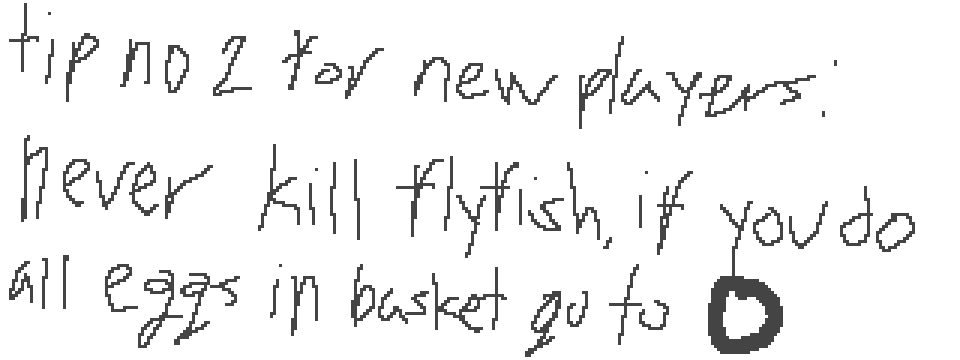 tip no 2 for new players:
never kill flyfish, if you do
all eggs in basket go to 0